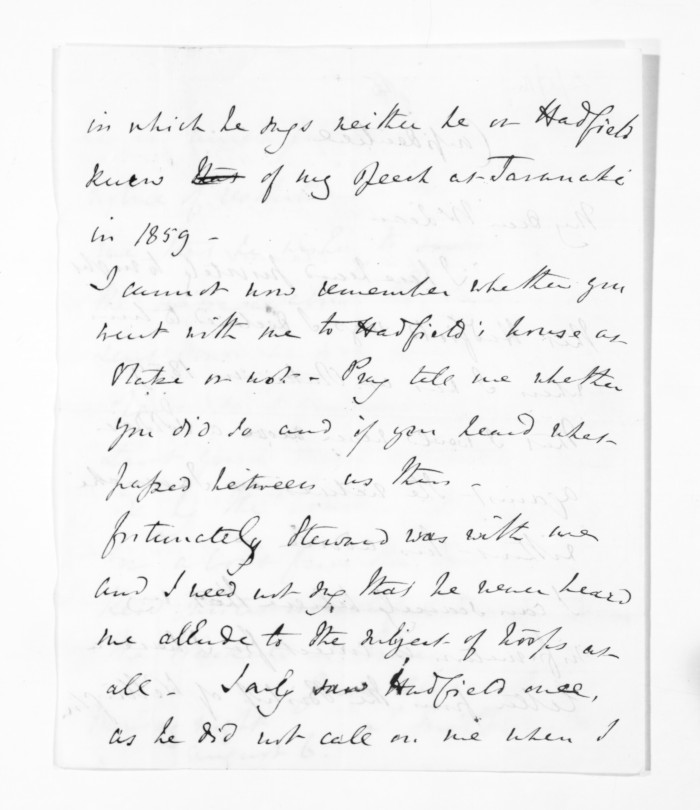 in which he says neither he or Hadfield
knew that of my Speech at Taranaki
in 1859 -
I cannot now remember whether you
went with me to Hadfield's house at
Otaki or not - Pray tell me whether
you did so and if you heard what
passed between us there -
fortunately Steward was with me
and I need not say that he never heard
me allude to the subject of troops at
all - I only saw Hadfield once,
as he did not call on me when I